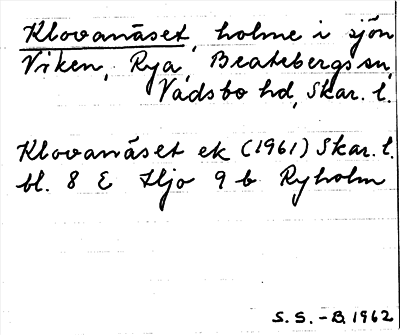 Klovanäset, holme i sjön
Viken, Rya, Beatebergs sn,
Vadsbo hd, Skar. l.
Klovanäset ek (1961) Skar. l.
bl. 8 E Hjo 9 b Ryholm
S. S. - B. 1962